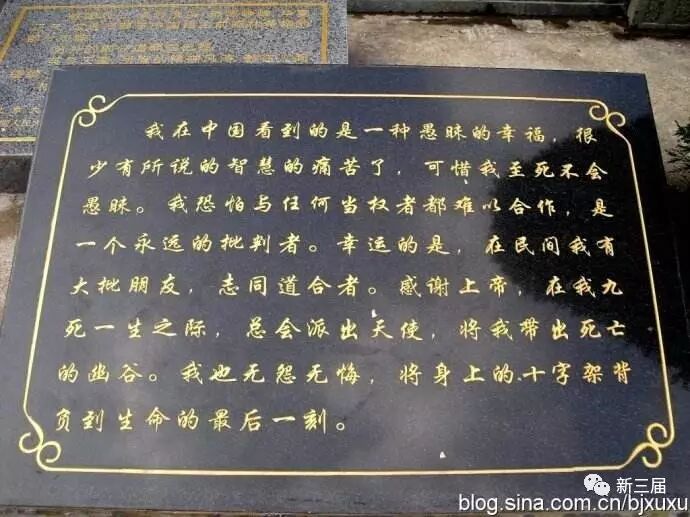 我在中国看到的是一种愚昧的幸福，很
少有所说的智慧的痛苦了，可惜我至死不会
愚昧。我恐怕与任何当权者都难以合作，是
一个永远的批判者。幸运的是，在民间我有
大批朋友，志同道合者。感谢上帝，在我九
死一生之际，总会派出天使，将我带出死亡
的幽谷。我也无怨无悔，将身上的十字架背
负到生命的最后一刻。
新三届
blog.sina.com.cn/bjxuxu